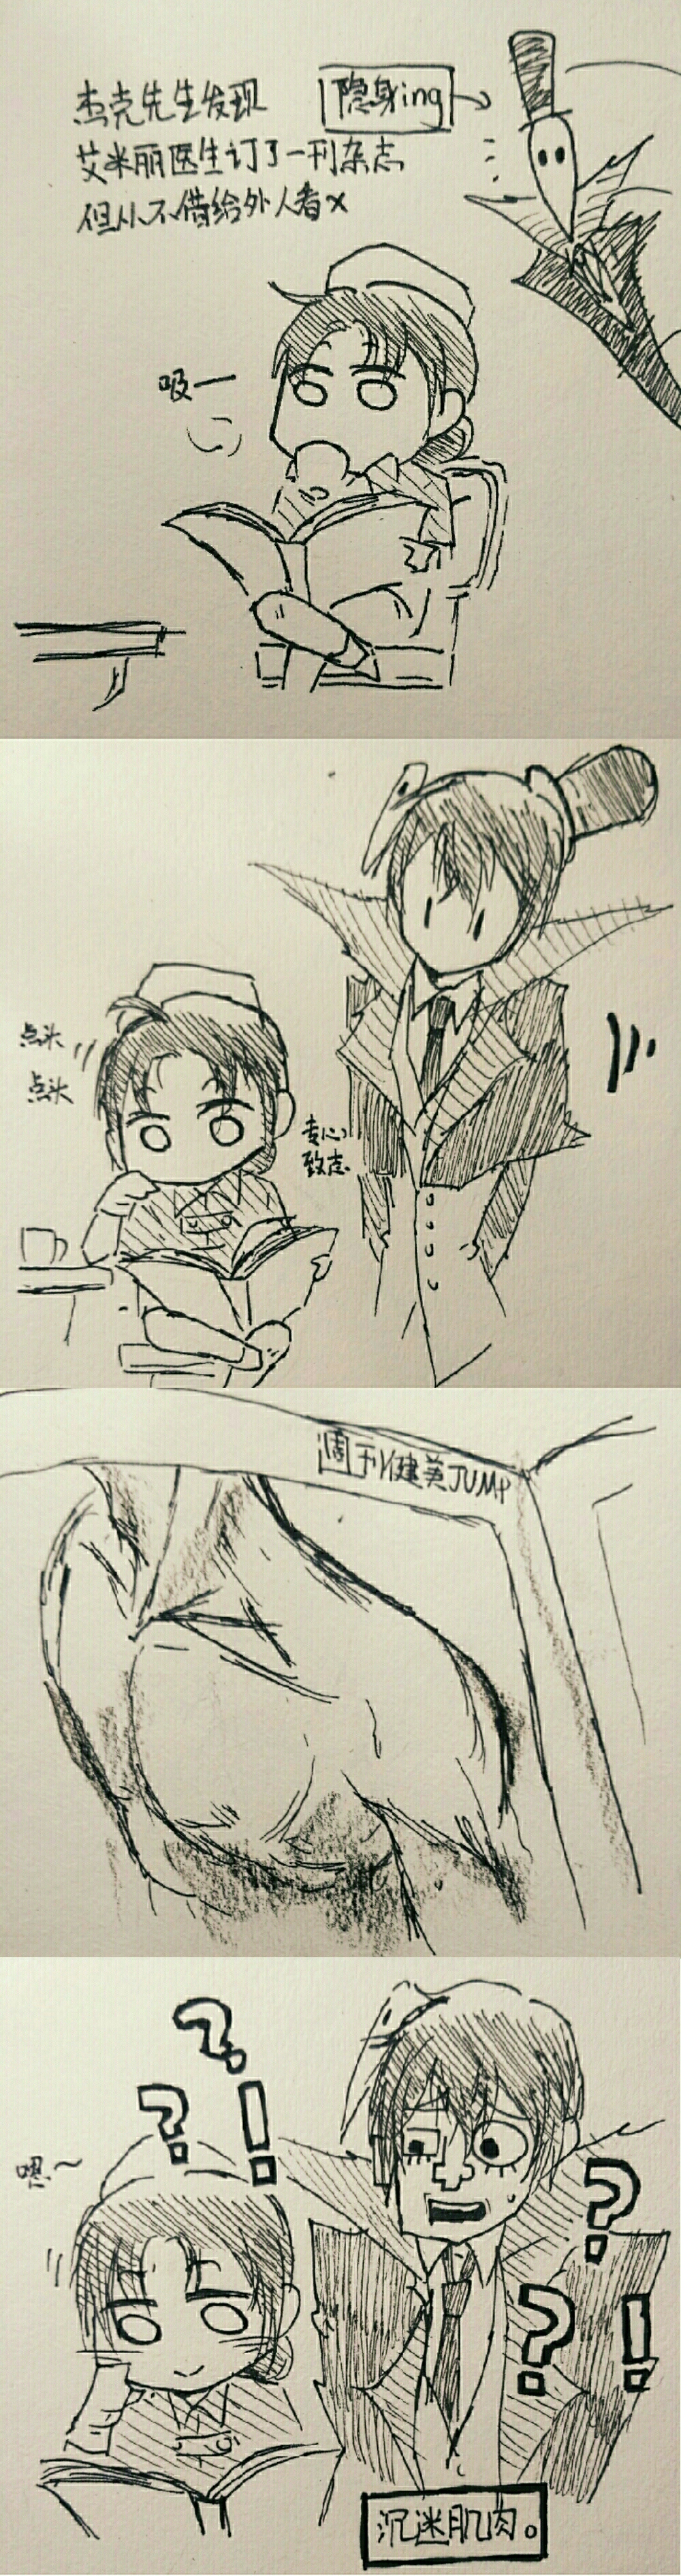 杰克先生发现
艾米丽医生订了一刊杂志
但从不借给外人看x
隐身ing
吸一
点头
点头
专心
致志
週刊健美JUMP
?
?!
嗯~
?
?!
沉迷肌肉。